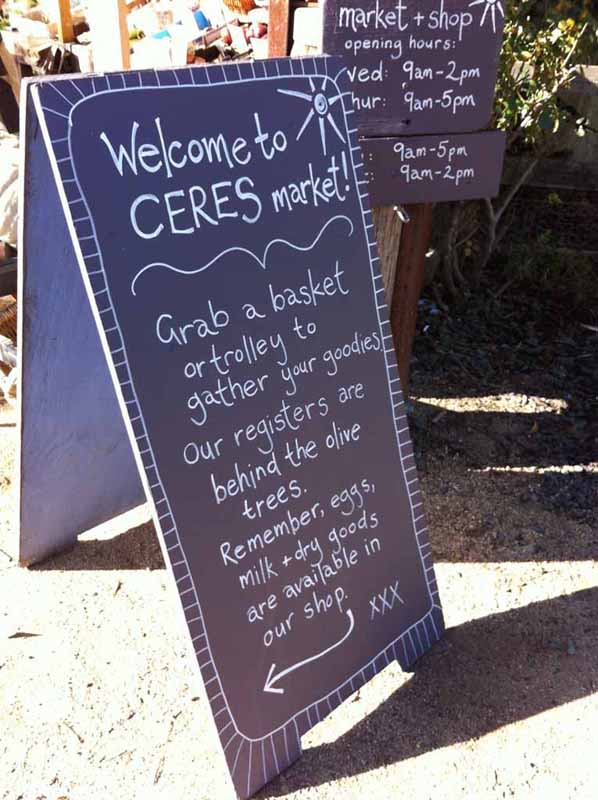 Welcome to
CERES market!
Grab a basket
or trolley to
gather your goodies
our registers are
behind the olive
trees.
Remember, eggs,
milk + dry goods
are available in
our shop.
xxx
market + shop
opening hours:
9am-2pm
9am-5pm
9am-5pm
9am-2pm